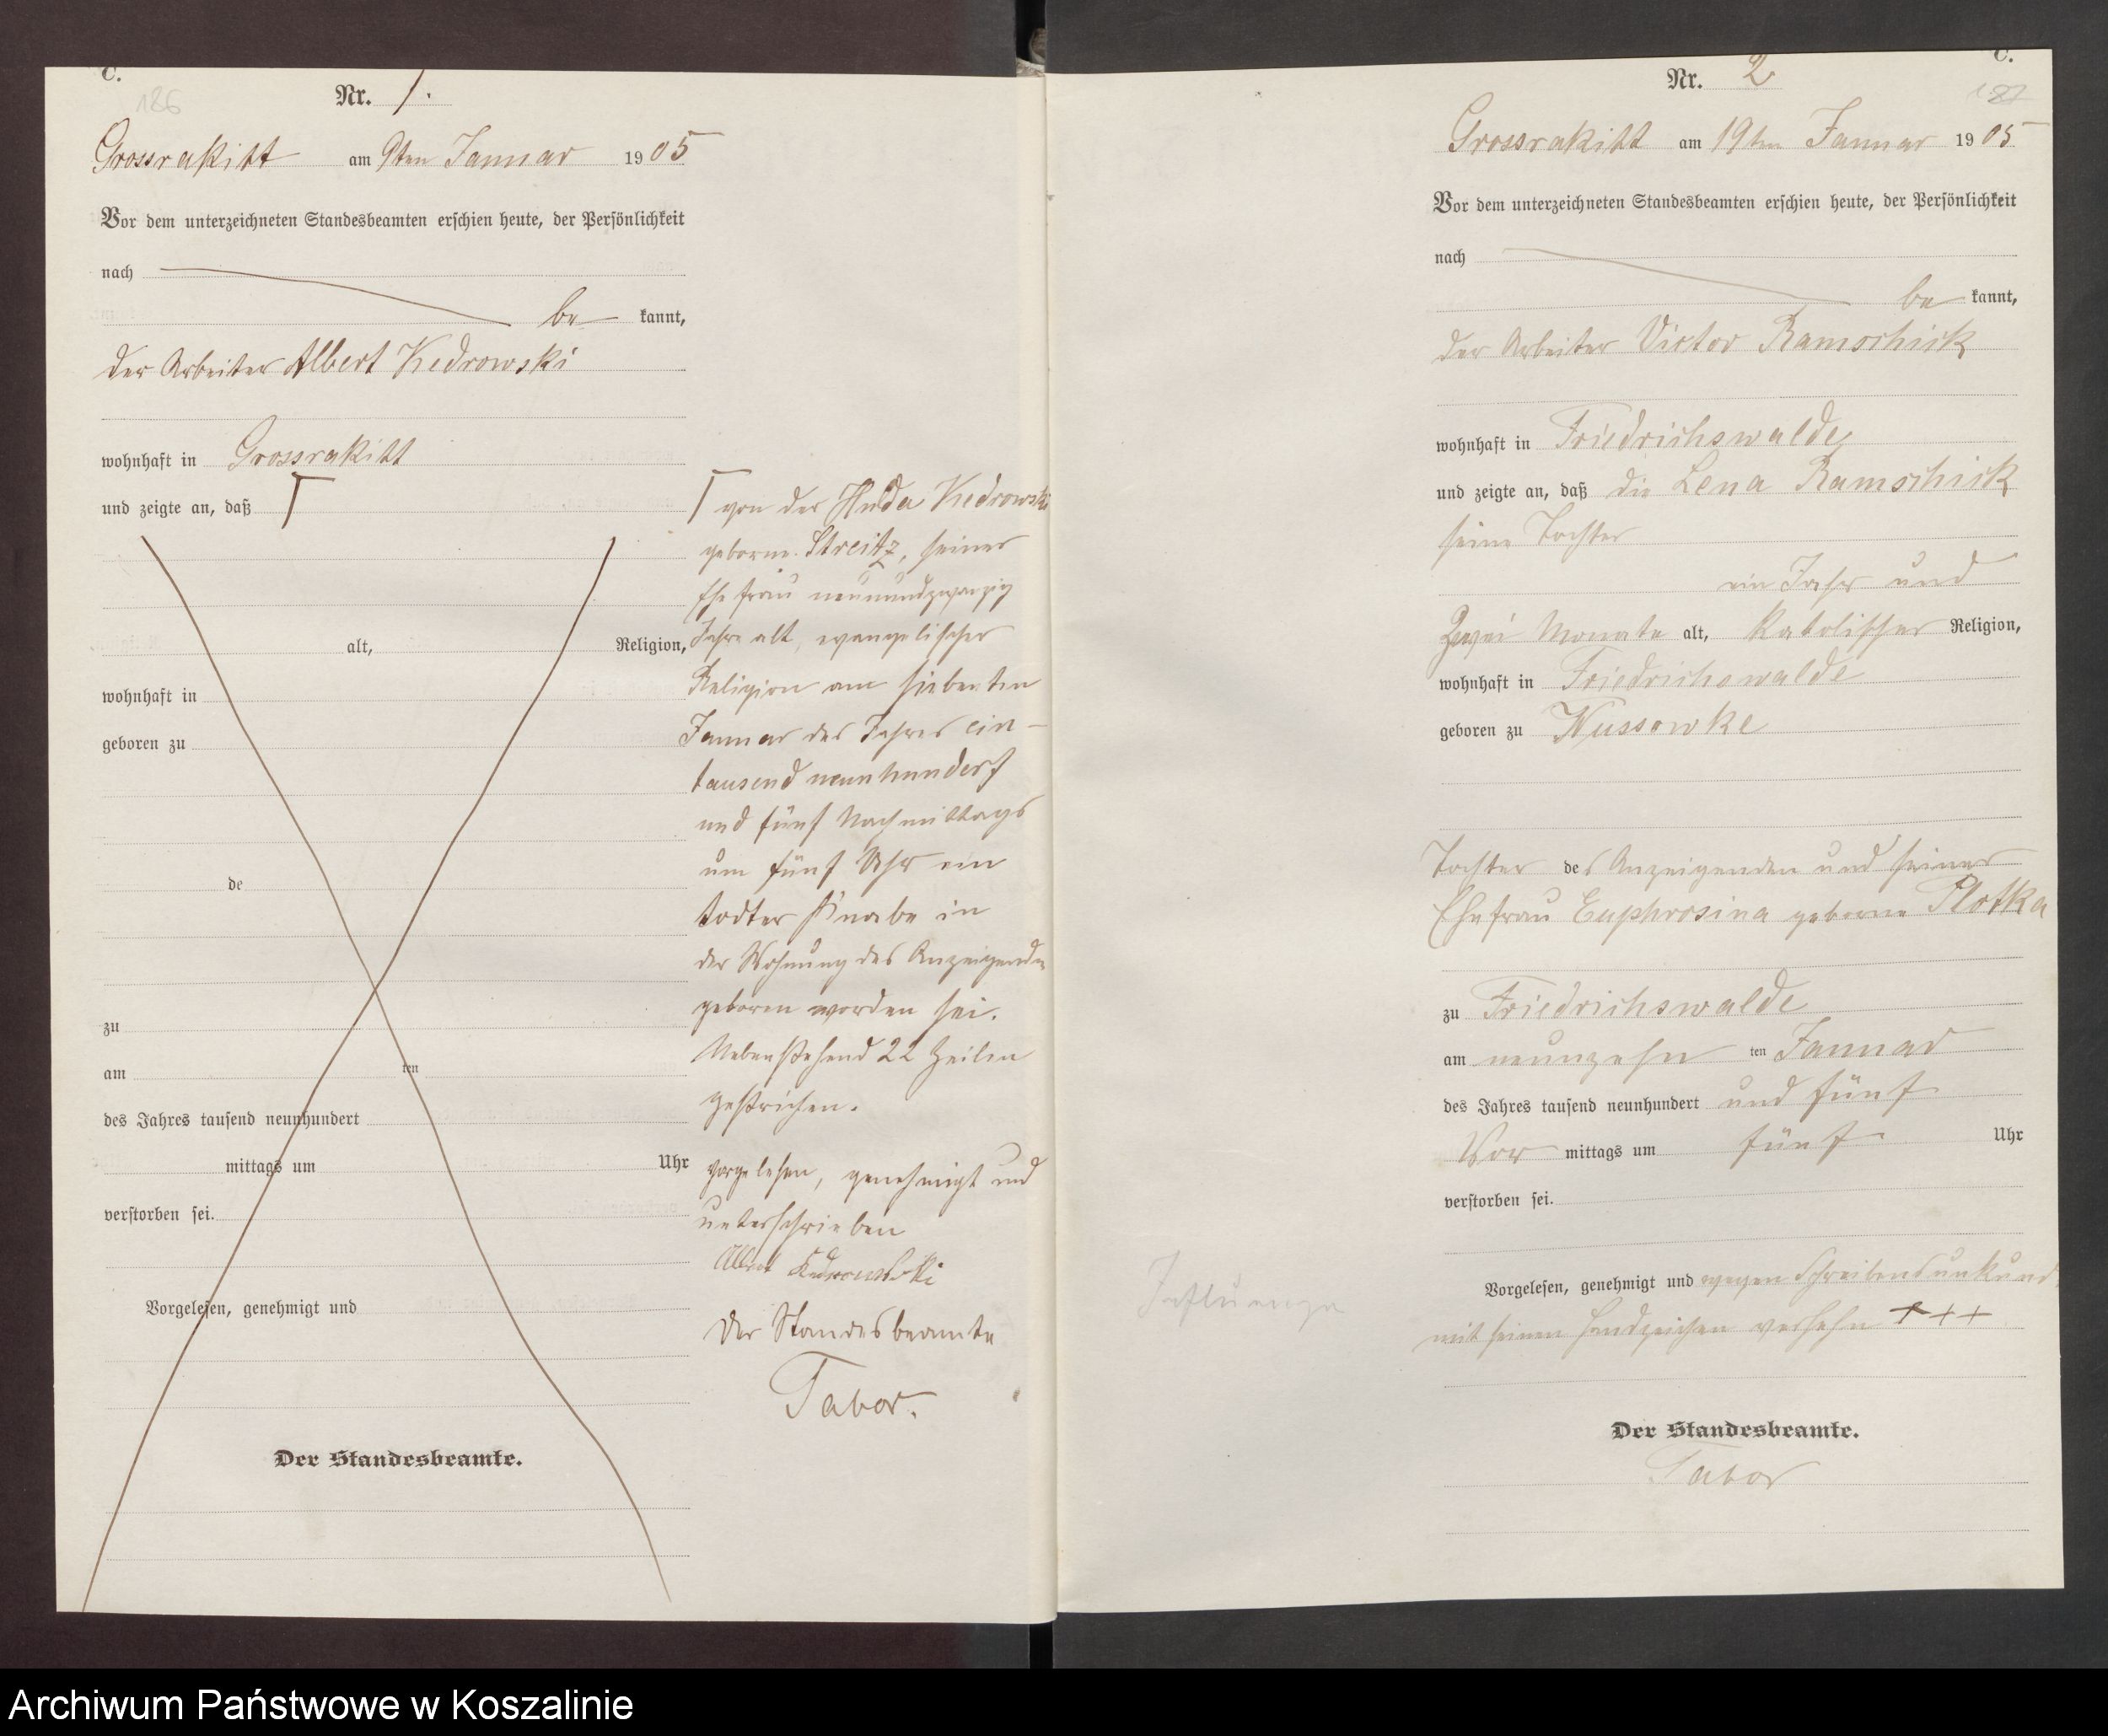 C.
186
Nr. 1.
Grossrakitt am 9ten Januar 1905
Vor dem unterzeichneten Standesbeamten erschien heute, der Persönlichkeit
nach
be kannt,
der Arbeiter Albert Kedrowski
wohnhaft in Grossrakitt
und zeigte an, daß Γ
alt, Religion,
wohnhaft in
geboren zu
de
zu
am ten
des Jahres tausend neunhundert
mittags um Uhr
verstorben sei.
Vorgelesen, genehmigt und
Der Standesbeamte.
Γ von der Hulda Kedrowski
geborne Streitz, seiner
Ehefrau neunundzwanzig
Jahre alt, evangelischer
Religion am siebenten
Januar des Jahres ein-
tausend neunhundert
und fünf Nachmittags
um fünf Uhr ein
todter Knabe in
der Wohnung des Anzeigenden
geboren worden sei.
Nebenstehend 22 Zeilen
gestrichen.
Vorgelesen, genehmigt und
unterschrieben
Albert Kedrowski
Der Standesbeamte
Tabor.
C.
187
Nr. 2
Grossrakitt am 19ten Januar 1905
Vor dem unterzeichneten Standesbeamten erschien heute, der Persönlichkeit
nach
be kannt,
der Arbeiter Victor Ramschick
wohnhaft in Friedrichswalde
und zeigte an, daß die Lena Ramschick
seine Tochter
ein Jahr und
Zwei Monate alt, katolischer Religion,
wohnhaft in Friedrichswalde
geboren zu Wussowke
Tochter des Anzeigenden und seiner
Ehefrau Euphrosina geborne Plotka
zu Friedrichswalde
am neunzehn ten Januar
des Jahres tausend neunhundert und fünf
Vor mittags um fünf Uhr
verstorben sei.
Vorgelesen, genehmigt und wegen Schreibensunkund
mit seinen Handzeichen versehn +++
Influenza
Der Standesbeamte.
Tabor
Archiwum Państwowe w Koszalinie